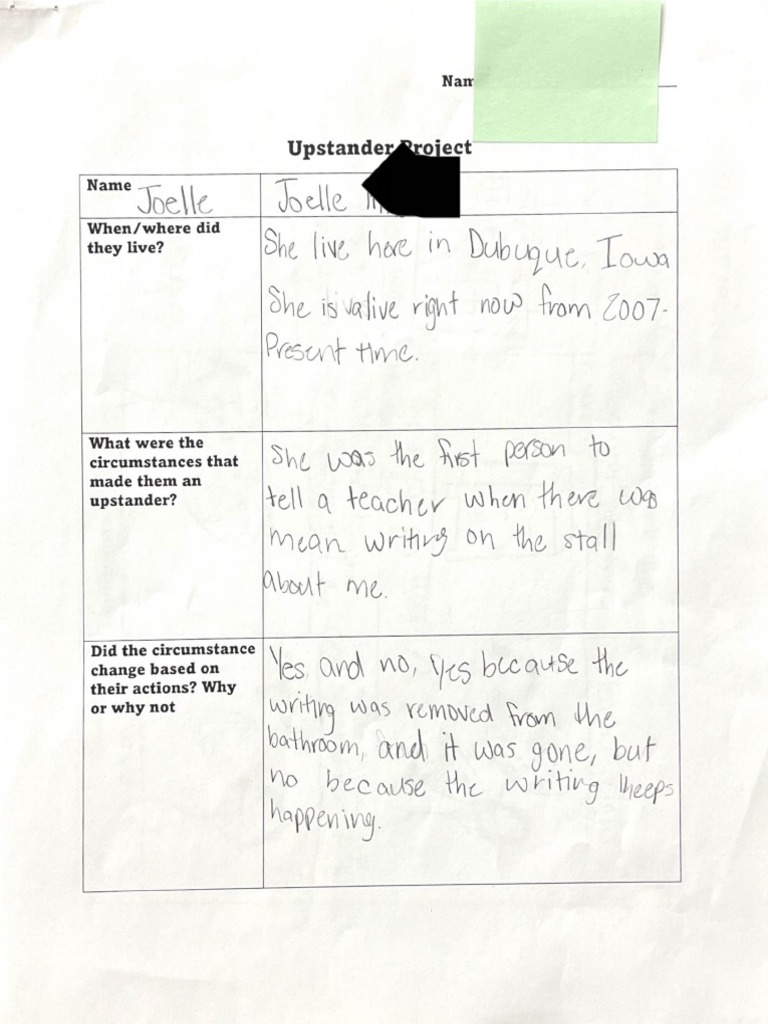 Nam
Upstander Project
Name Joelle
Joelle
When/where did
they live?
She live here in Dubuque, Iowa
She is alive right now from 2007-
Present time.
What were the
circumstances that
made them an
upstander?
She was the first person to
tell a teacher when there was
mean writing on the stall
about me.
Did the circumstance
change based on
their actions? Why
or why not
Yes and no, Yes because the
writing was removed from the
bathroom, and it was gone, but
no because the writing kheeps
happening.